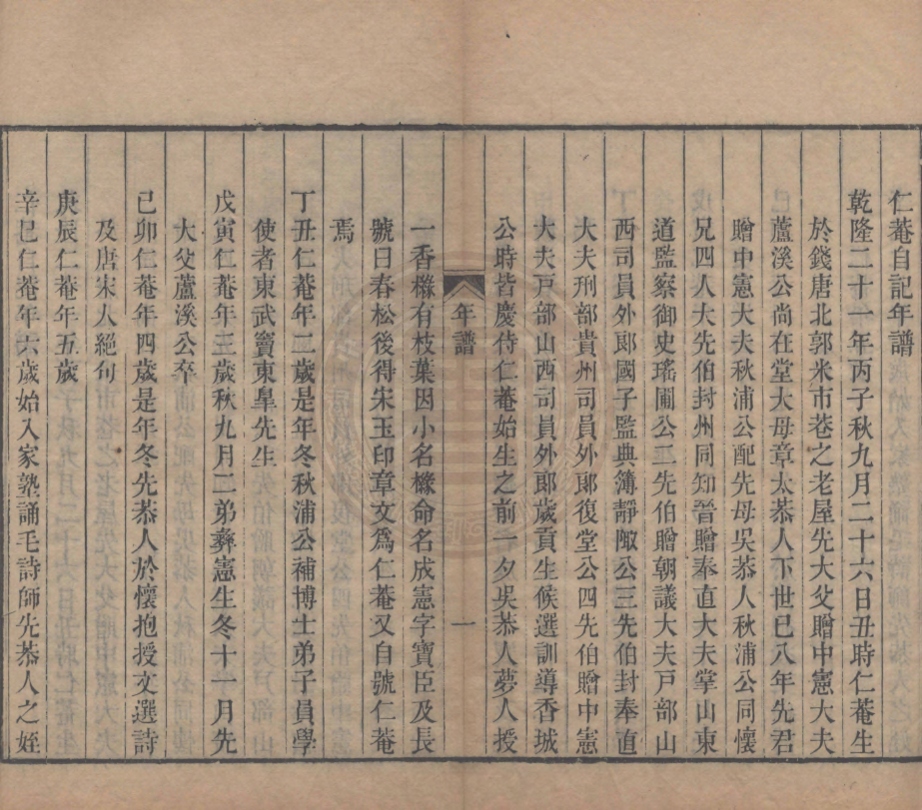 仁菴自記年譜
乾隆二十一年丙子秋九月二十六日丑時仁菴生
於錢唐北郭米市巷之老屋先大父贈中憲大夫
蘆溪公尚在堂大母章太恭人下世已八年先君
贈中憲大夫秋浦公配先母吳恭人秋浦公同懷
兄四人大先伯封州同知晉贈奉直大夫掌山東
道監察御史瑤圃公二先伯贈朝議大夫戸部山
西司員外郎國子監典簿靜陬公三先伯封奉直
大夫刑部貴州司員外郎復堂公四先伯贈中憲
大夫戸部山西司員外郎歲貢生候選訓導香城
公時皆慶侍仁菴始生之前一夕吳恭人夢人授
年譜
一
一香櫞有枝葉因小名櫞命名成憲字寶臣及長
號曰春松後得宋玉印章文爲仁菴又自號仁菴
焉
丁丑仁菴年二歲是年冬秋浦公補博士弟子員學
使者東武竇東臯先生
戊寅仁菴年三歲秋九月二弟彝憲生冬十一月先
大父蘆溪公卒
己卯仁菴年四歲是年冬先恭人於懷抱授文選詩
及唐宋人絕句
庚辰仁菴年五歲
辛巳仁菴年六歲始入家塾誦毛詩師先恭人之姪